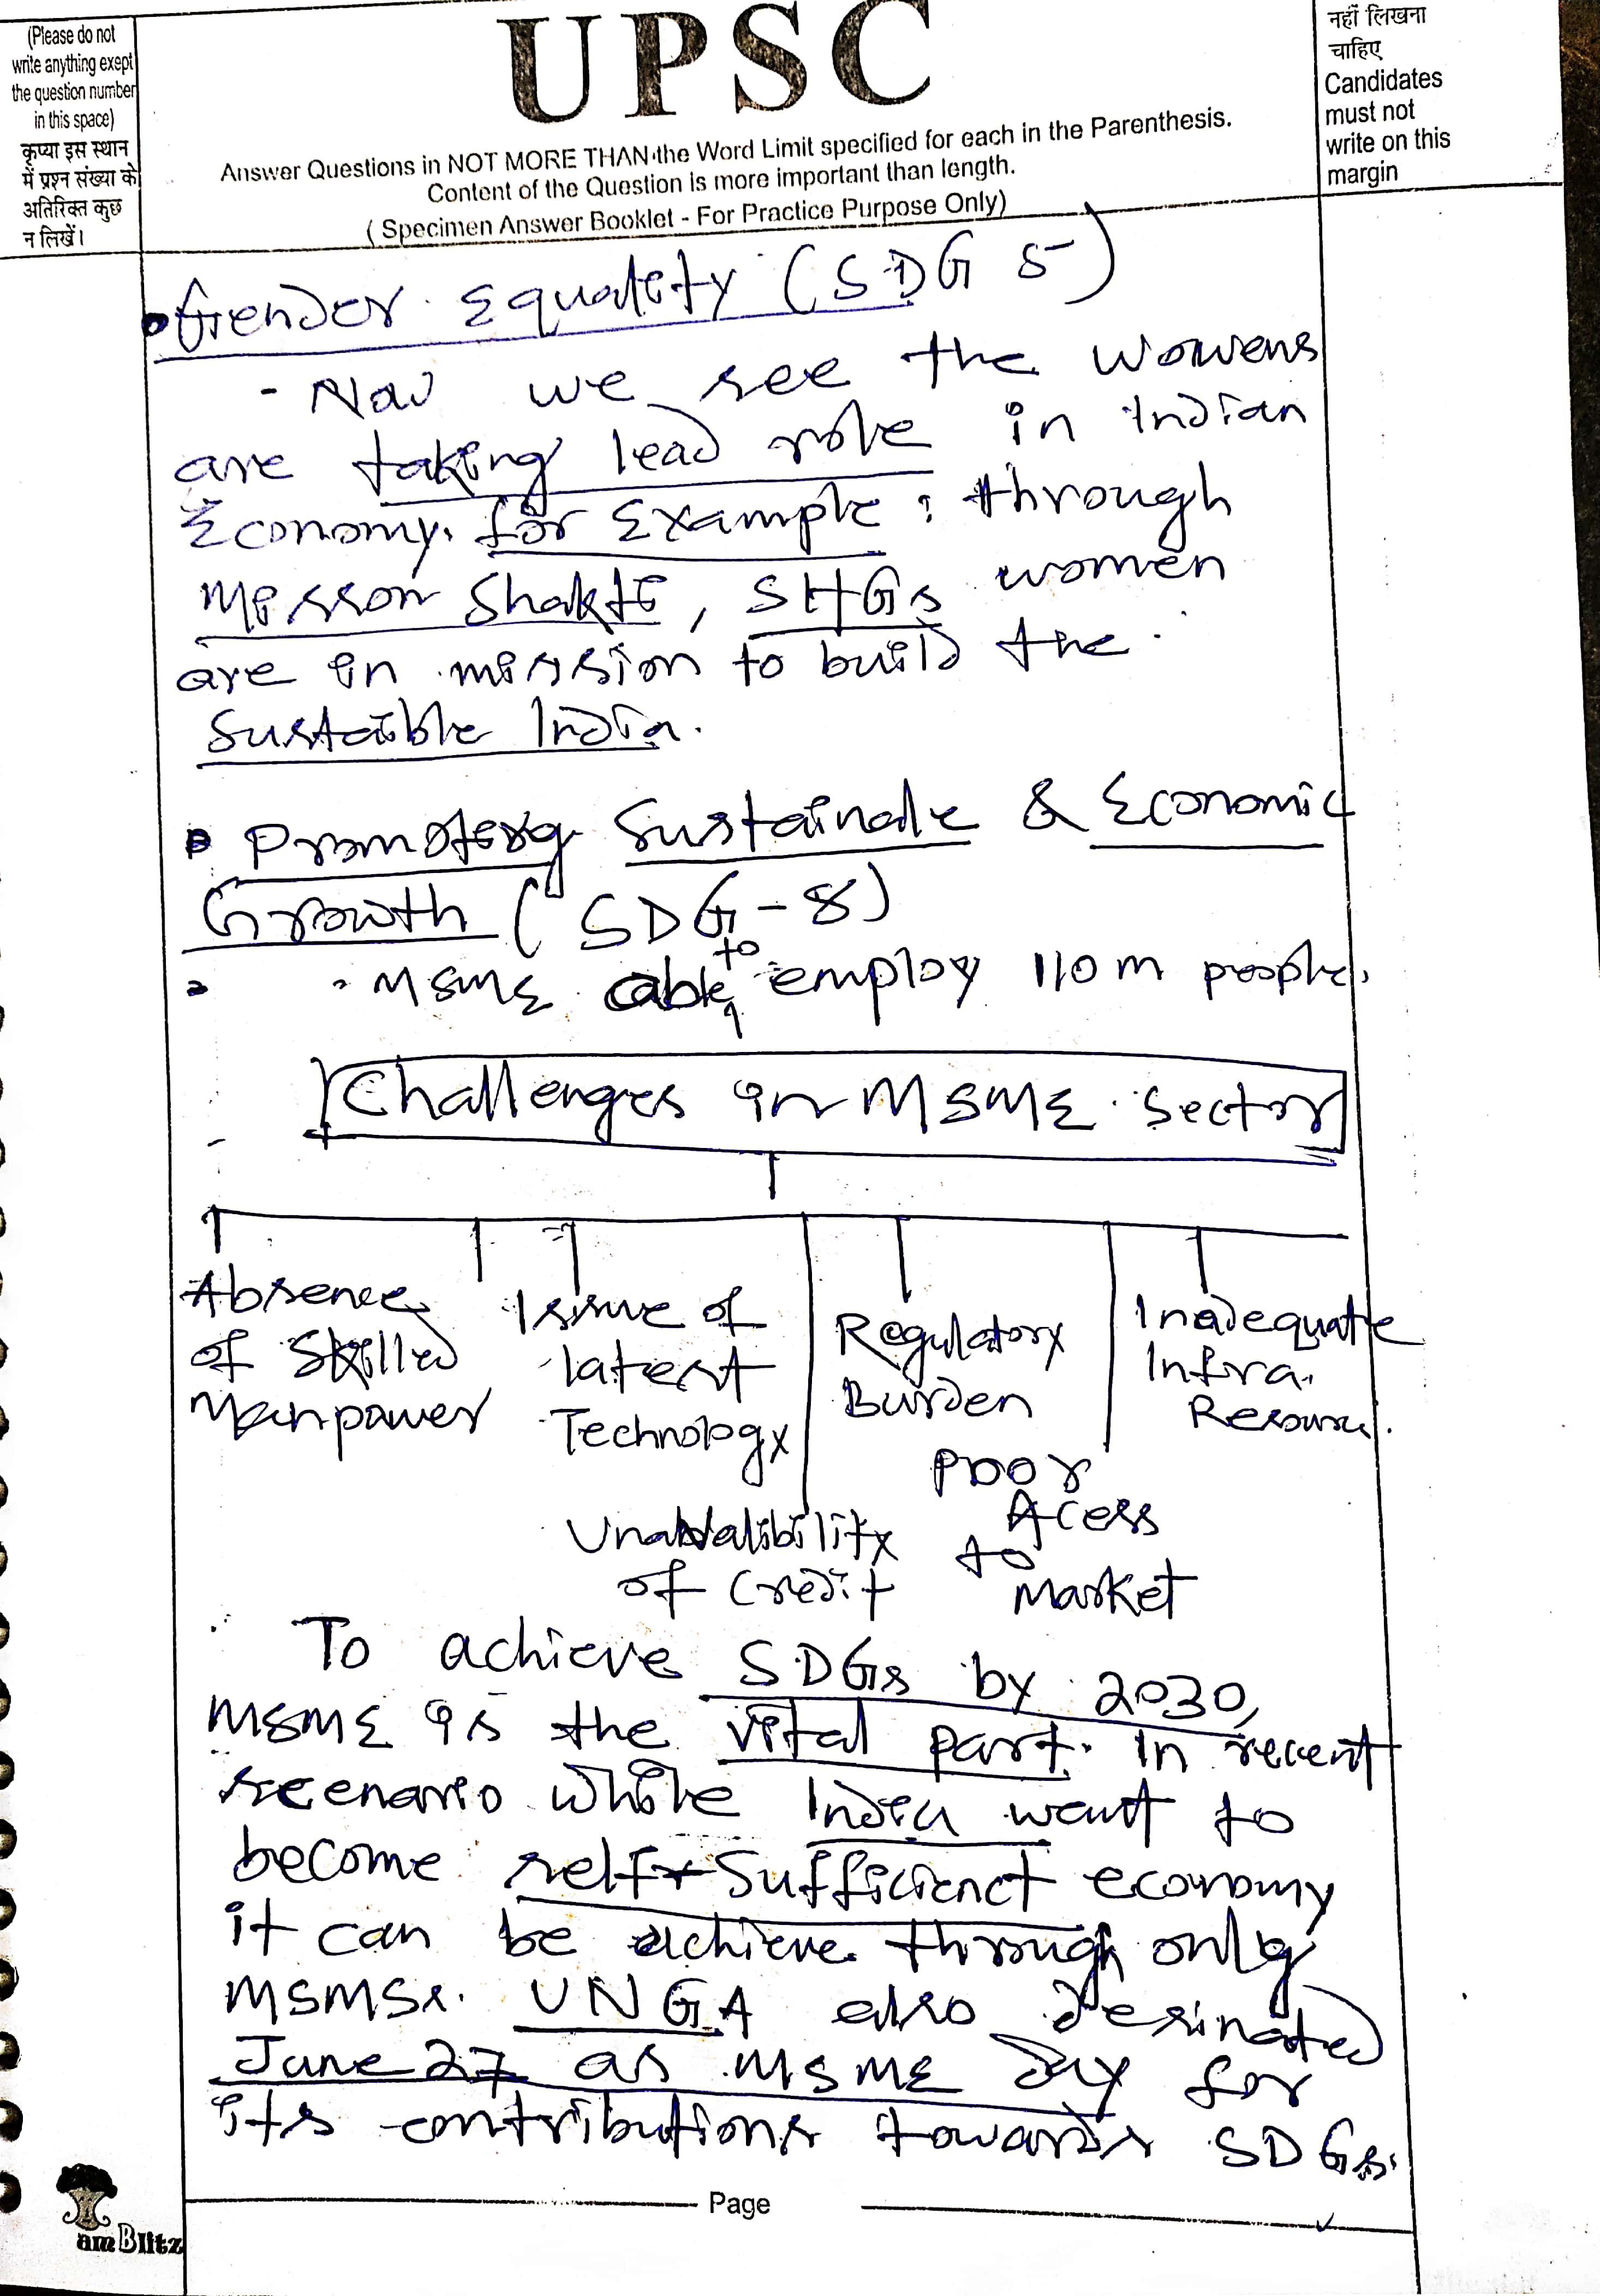 (Please do not
write anything exept
the question number
in this space)
कृप्या इस स्थान
में प्रश्न संख्या के
अतिरिक्त कुछ
न लिखें।
UPSC
Answer Questions in NOT MORE THAN the Word Limit specified for each in the Parenthesis.
Content of the Question is more important than length.
( Specimen Answer Booklet - For Practice Purpose Only)
नहीं लिखना
चाहिए
Candidates
must not
write on this
margin
Gender Equality (SDG 5)
- Now we see the womens
are taking lead role in Indian
Economy. for Example : through
Mission Shakti, SHGs women
are in mission to build the
Sustaible India.
Promoting Sustainale & Economic
Growth (SDG-8)
MSME cable to employ 110 m people.
Challenges in MSME sector
Absence
of Skilled
Manpower
Issue of
latest
Technology
Regulatory
Burden
Inadequate
Infra.
Resource.
Unabalibility
of Credit
Poor
Acess
to
Market
To achieve SDGs by 2030,
MSME is the vital part. In recent
scenario while India want to
become self-Sufficienct economy
it can be achieve through only
MSMSs. UNGA also desinated
June 27 as MSME Day for
its contributions towards SDGs.
Page
amBlitz